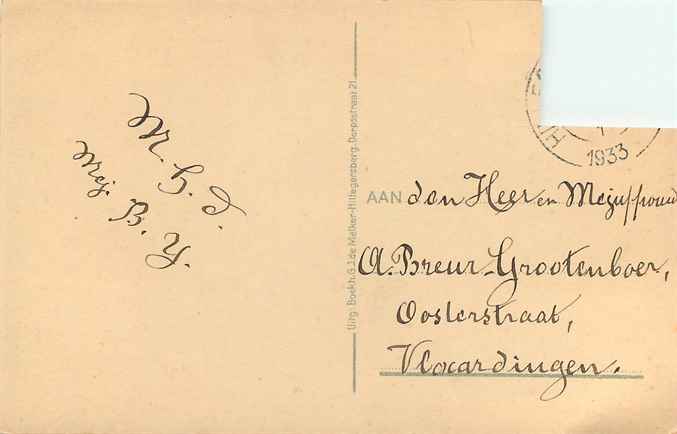 M. G. d.
Mej. B. Y.
Uitg: Boekh. G.J. de Melker-Hillegersberg. Dorpsstraat 21.
1933
AAN den Heer en Mejuffrouw
A. Breur-Grootenboer,
Oosterstraat,
Vlaardingen.